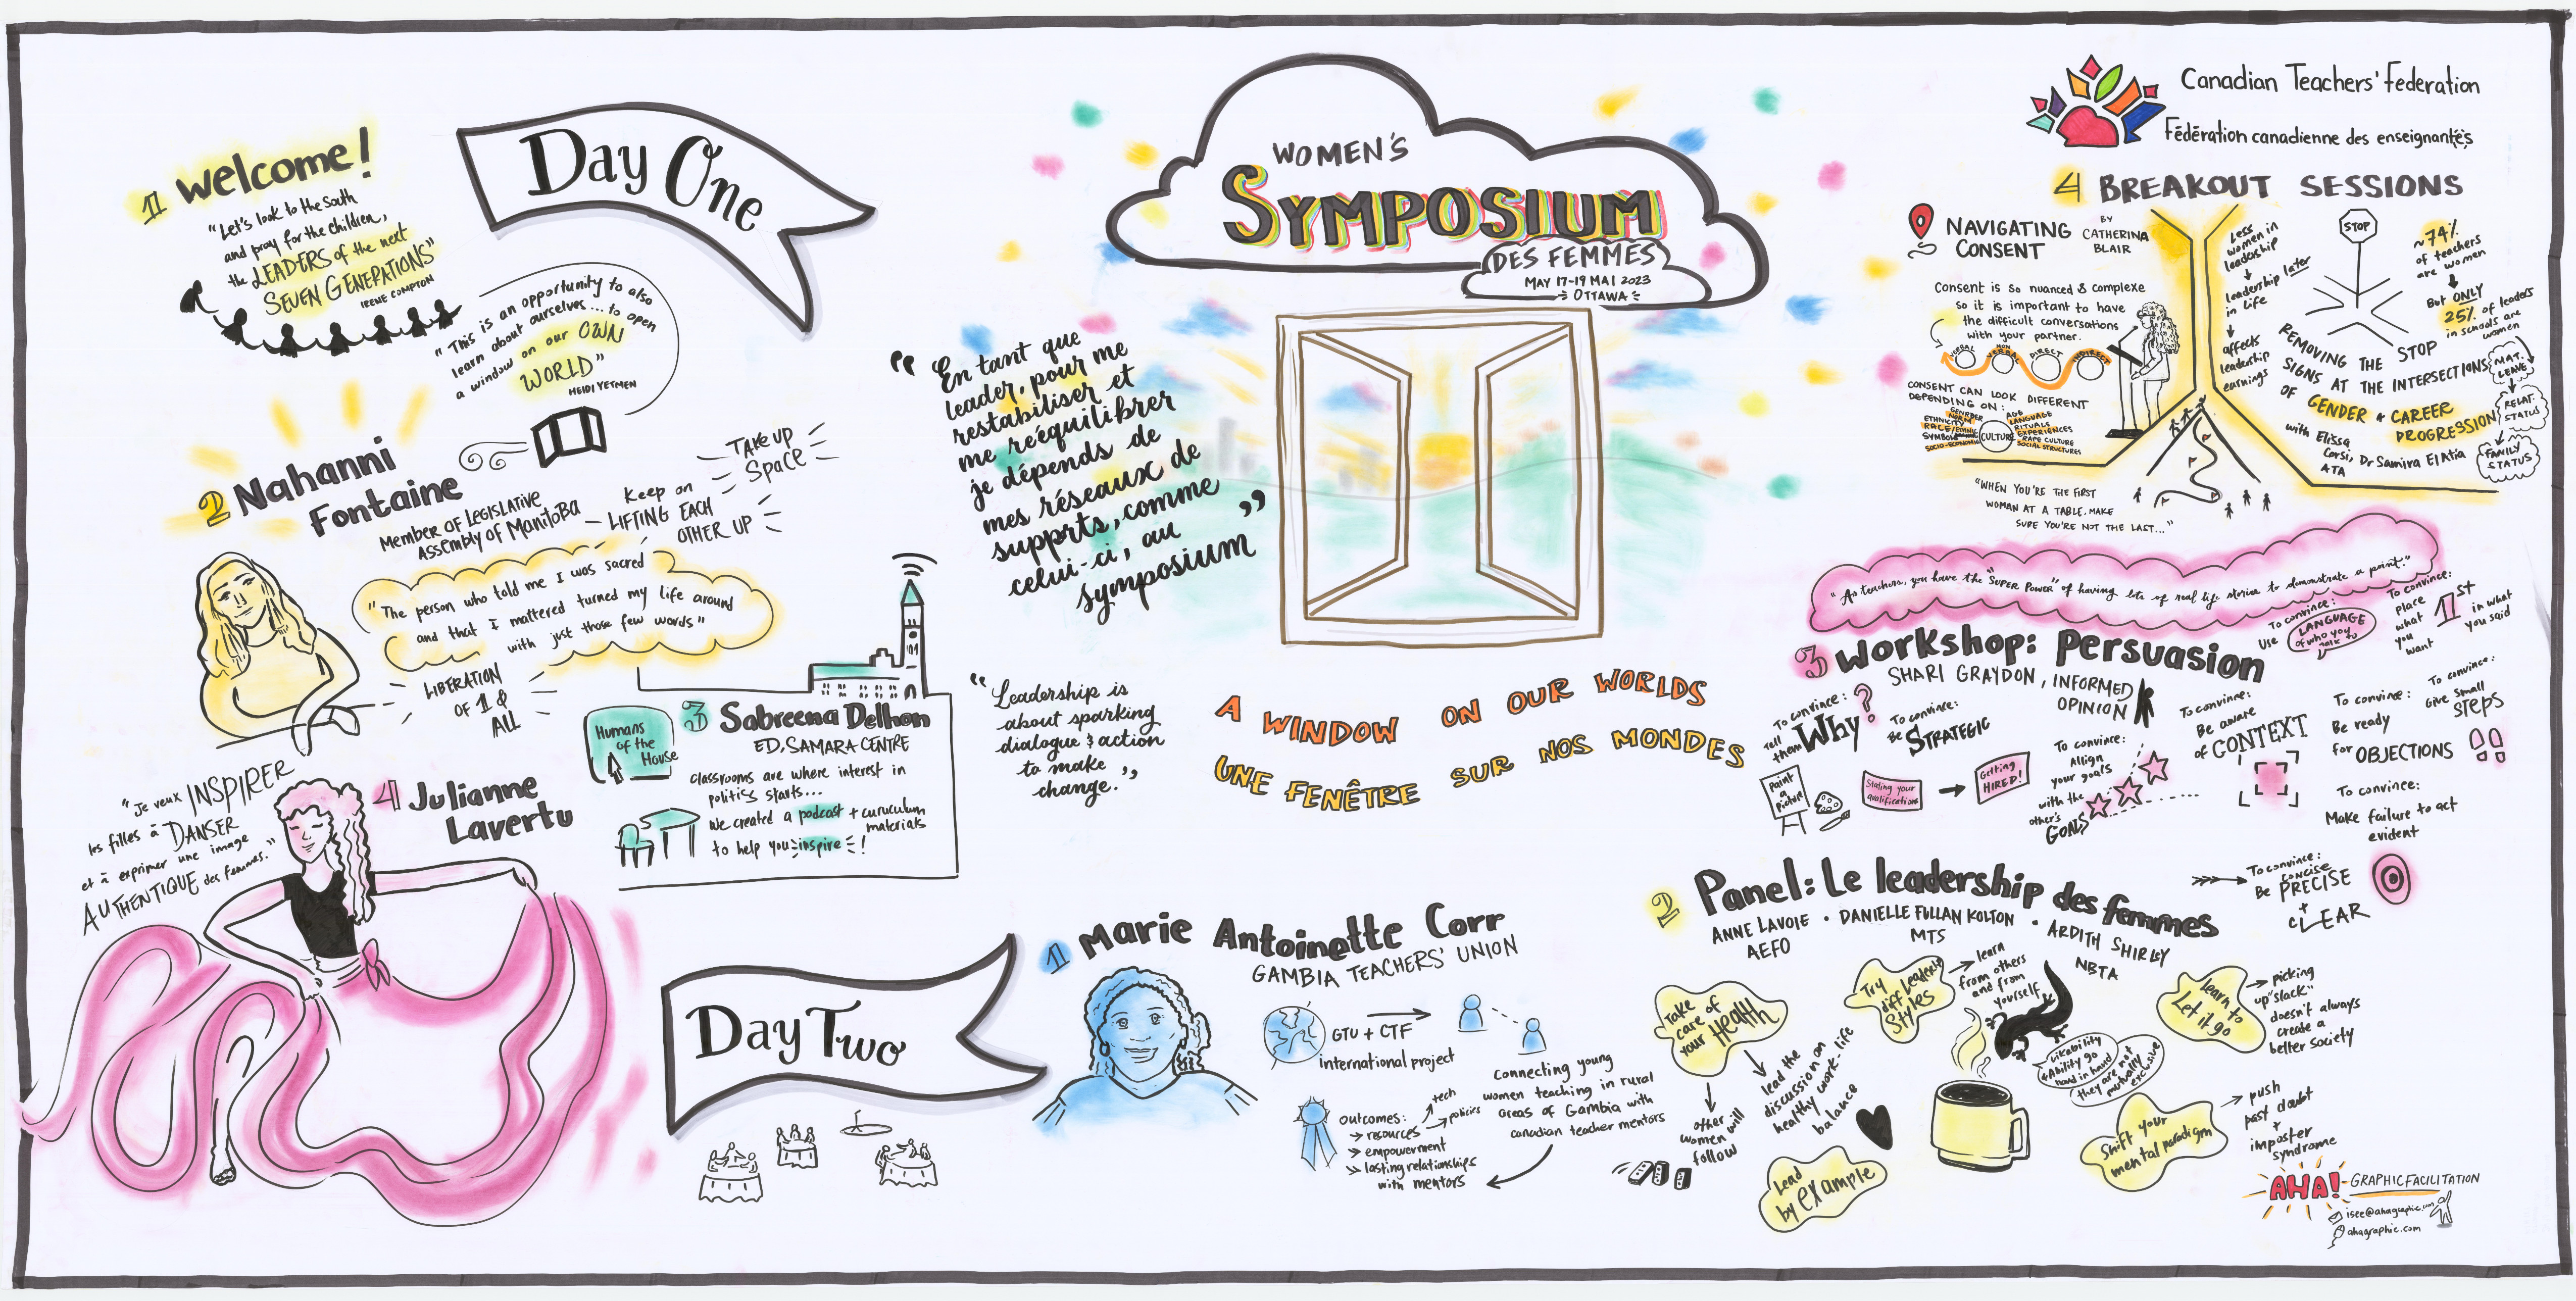 Day One
1 Welcome!
"Let's look to the South
and pray for the children,
the LEADERS of the next
SEVEN GENERATIONS"
IRENE COMPTON
"This is an opportunity to also
learn about ourselves... to open
a window on our OWN
WORLD"
HEIDI YETMEN
2 Nahanni
Fontaine
Member of Legislative
Assembly of Manitoba
TAKE UP
SPACE
Keep on
LIFTING EACH
OTHER UP
"The person who told me I was sacred
and that I mattered turned my life around
with just those few words"
LIBERATION
OF 1 &
ALL
Humans
of the
House
3 Sabreena Delhon
ED, SAMARA CENTRE
classrooms are where interest in
politics starts...
We created a podcast + curuculum
materials
to help you inspire!
4 Julianne
Lavertu
"Je veux INSPIRER
les filles à DANSER
et à exprimer une image
AUTHENTIQUE des femmes."
WOMEN'S
SYMPOSIUM
DES FEMMES
MAY 17-19 MAI 2023
OTTAWA
"En tant que
leader, pour me
restabiliser et
me rééquilibrer
je dépends de
mes réseaux de
supprts, comme
celui-ci, au
symposium"
"Leadership is
about sparking
dialogue & action
to make
change."
A WINDOW ON OUR WORLDS
UNE FENÊTRE SUR NOS MONDES
Day Two
1 Marie Antoinette Corr
GAMBIA TEACHERS' UNION
GTU + CTF
international project
connecting young
women teaching in rural
areas of Gambia with
canadian teacher mentors
outcomes:
resources
tech
policies
empowerment
lasting relationships
with mentors
2 Panel: Le leadership des femmes
ANNE LAVOIE • DANIELLE FULLAN KOLTON • ARDITH SHIRLEY
AEFO
MTS
NBTA
Take
care of
your Health
other
women will
follow
lead the
discussion on
healthy work-life
balance
Try
diff Leadership
Styles
learn
from others
and from
yourself
learn to
Let it go
picking
up "slack"
doesn't always
create a
better society
Likability
+ Ability go
hand in hand
they are not
mutually
exclusive
Shift your
mental paradigm
push
past doubt
+
imposter
syndrome
Lead
by example
3 Workshop: Persuasion
SHARI GRAYDON, INFORMED
OPINION
"As teachers, you have the "SUPER POWER" of having lots of real life stories to demonstrate a point."
To convince:
Use LANGUAGE
of who you
talk to
To convince:
place
what
you
want
1st
in what
you said
To convince:
Tell
them Why?
To convince:
Be STRATEGIC
Paint
a
picture
Stating your
qualifications
Getting
HIRED!
To convince:
Allign
your goals
with the
other's
GOALS
To convince:
Be aware
of CONTEXT
To convince:
Be ready
for OBJECTIONS
To convince:
Give small
STEPS
To convince:
Make failure to act
evident
To convince:
concise
Be PRECISE
+
CLEAR
Canadian Teachers' Federation
Fédération canadienne des enseignantes
4 BREAKOUT SESSIONS
NAVIGATING
CONSENT
BY
CATHERINA
BLAIR
Consent is so nuanced & complexe
so it is important to have
the difficult conversations
with your partner.
VERBAL
NON VERBAL
DIRECT
INDIRECT
CONSENT CAN LOOK DIFFERENT
DEPENDING ON:
CULTURE
GENDER
NORM
ETHNICITY
SYMBOLS
SOCIO-ECONOMIC
AGE
LANGUAGE
RITUALS
EXPERIENCES
RAPE CULTURE
SOCIAL STRUCTURES
"WHEN YOU'RE THE FIRST
WOMAN AT A TABLE, MAKE
SURE YOU'RE NOT THE LAST..."
Less
women in
leadership
leadership later
in life
affects
leadership
earnings
STOP
~74%
of teachers
are women
But ONLY
25% of leaders
in schools are
women
REMOVING THE STOP
SIGNS AT THE INTERSECTIONS
OF GENDER & CAREER
PROGRESSION
with Elissa
Corsi, Dr Samira El Atia
ATA
MAT.
LEAVE
RELAT.
STATUS
FAMILY
STATUS
AHA! GRAPHIC FACILITATION
isee@ahagraphic.com
ahagraphic.com